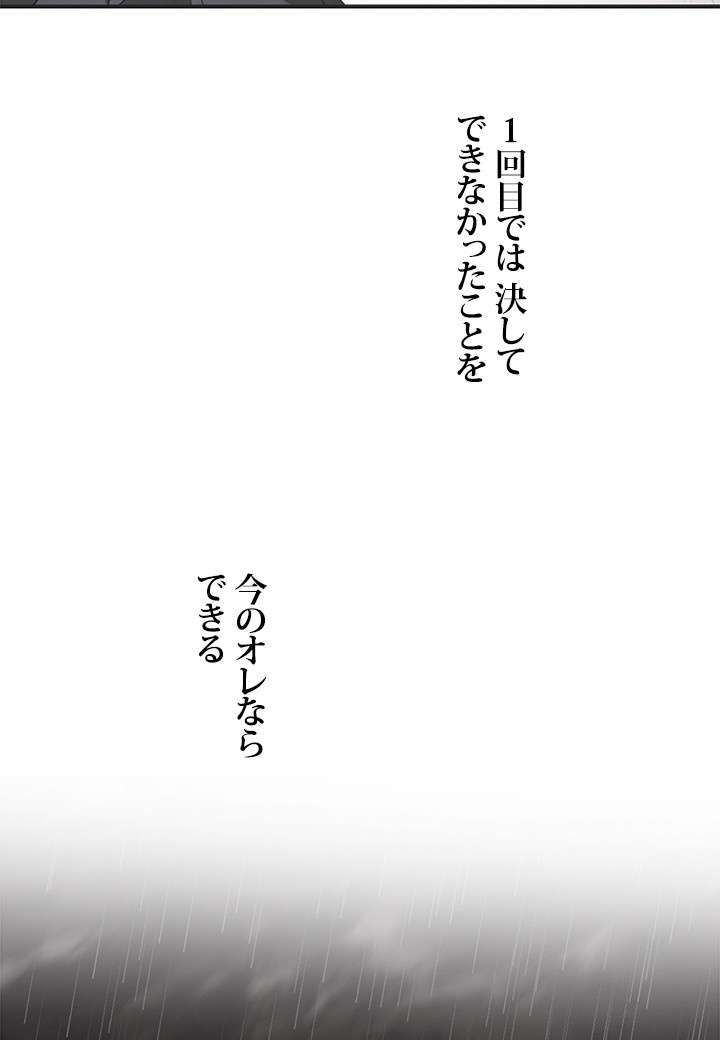 1回目では 決して
できなかったことを
今のオレなら
できる